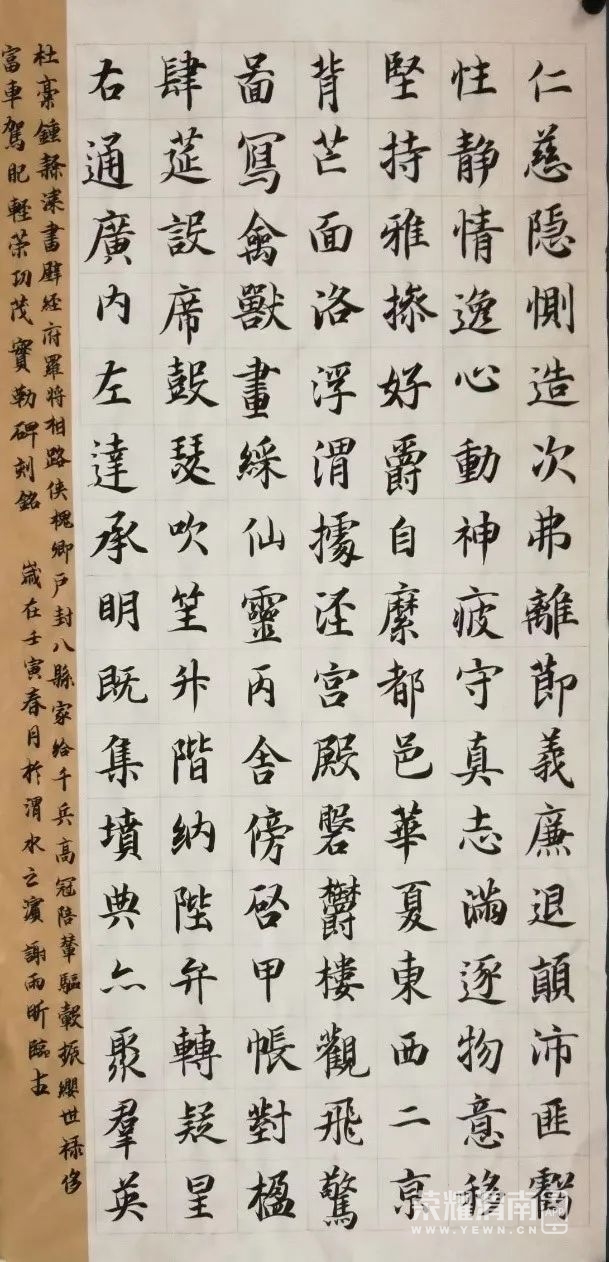 仁慈隱惻造次弗離節義廉退顛沛匪虧
性靜情逸心動神疲守真志滿逐物意移
堅持雅操好爵自縻都邑華夏東西二京
背芒面洛浮渭據涇宮殿磐鬱樓觀飛驚
啚寫禽獸畫綵仙靈丙舍傍啓甲帳對楹
肆莚設席鼓瑟吹笙升階納陛弁轉疑星
右通廣內左達承明既集墳典亦聚羣英
杜稾鍾隸漆書壁經府羅將相路俠槐卿戶封八縣家給千兵高冠陪輦驅轂振纓世祿侈
富車駕肥輕策功茂實勒碑刻銘 歲在壬寅春月於渭水之濱 謝雨昕臨古
荣耀渭南网
WWW.YEWN.CN